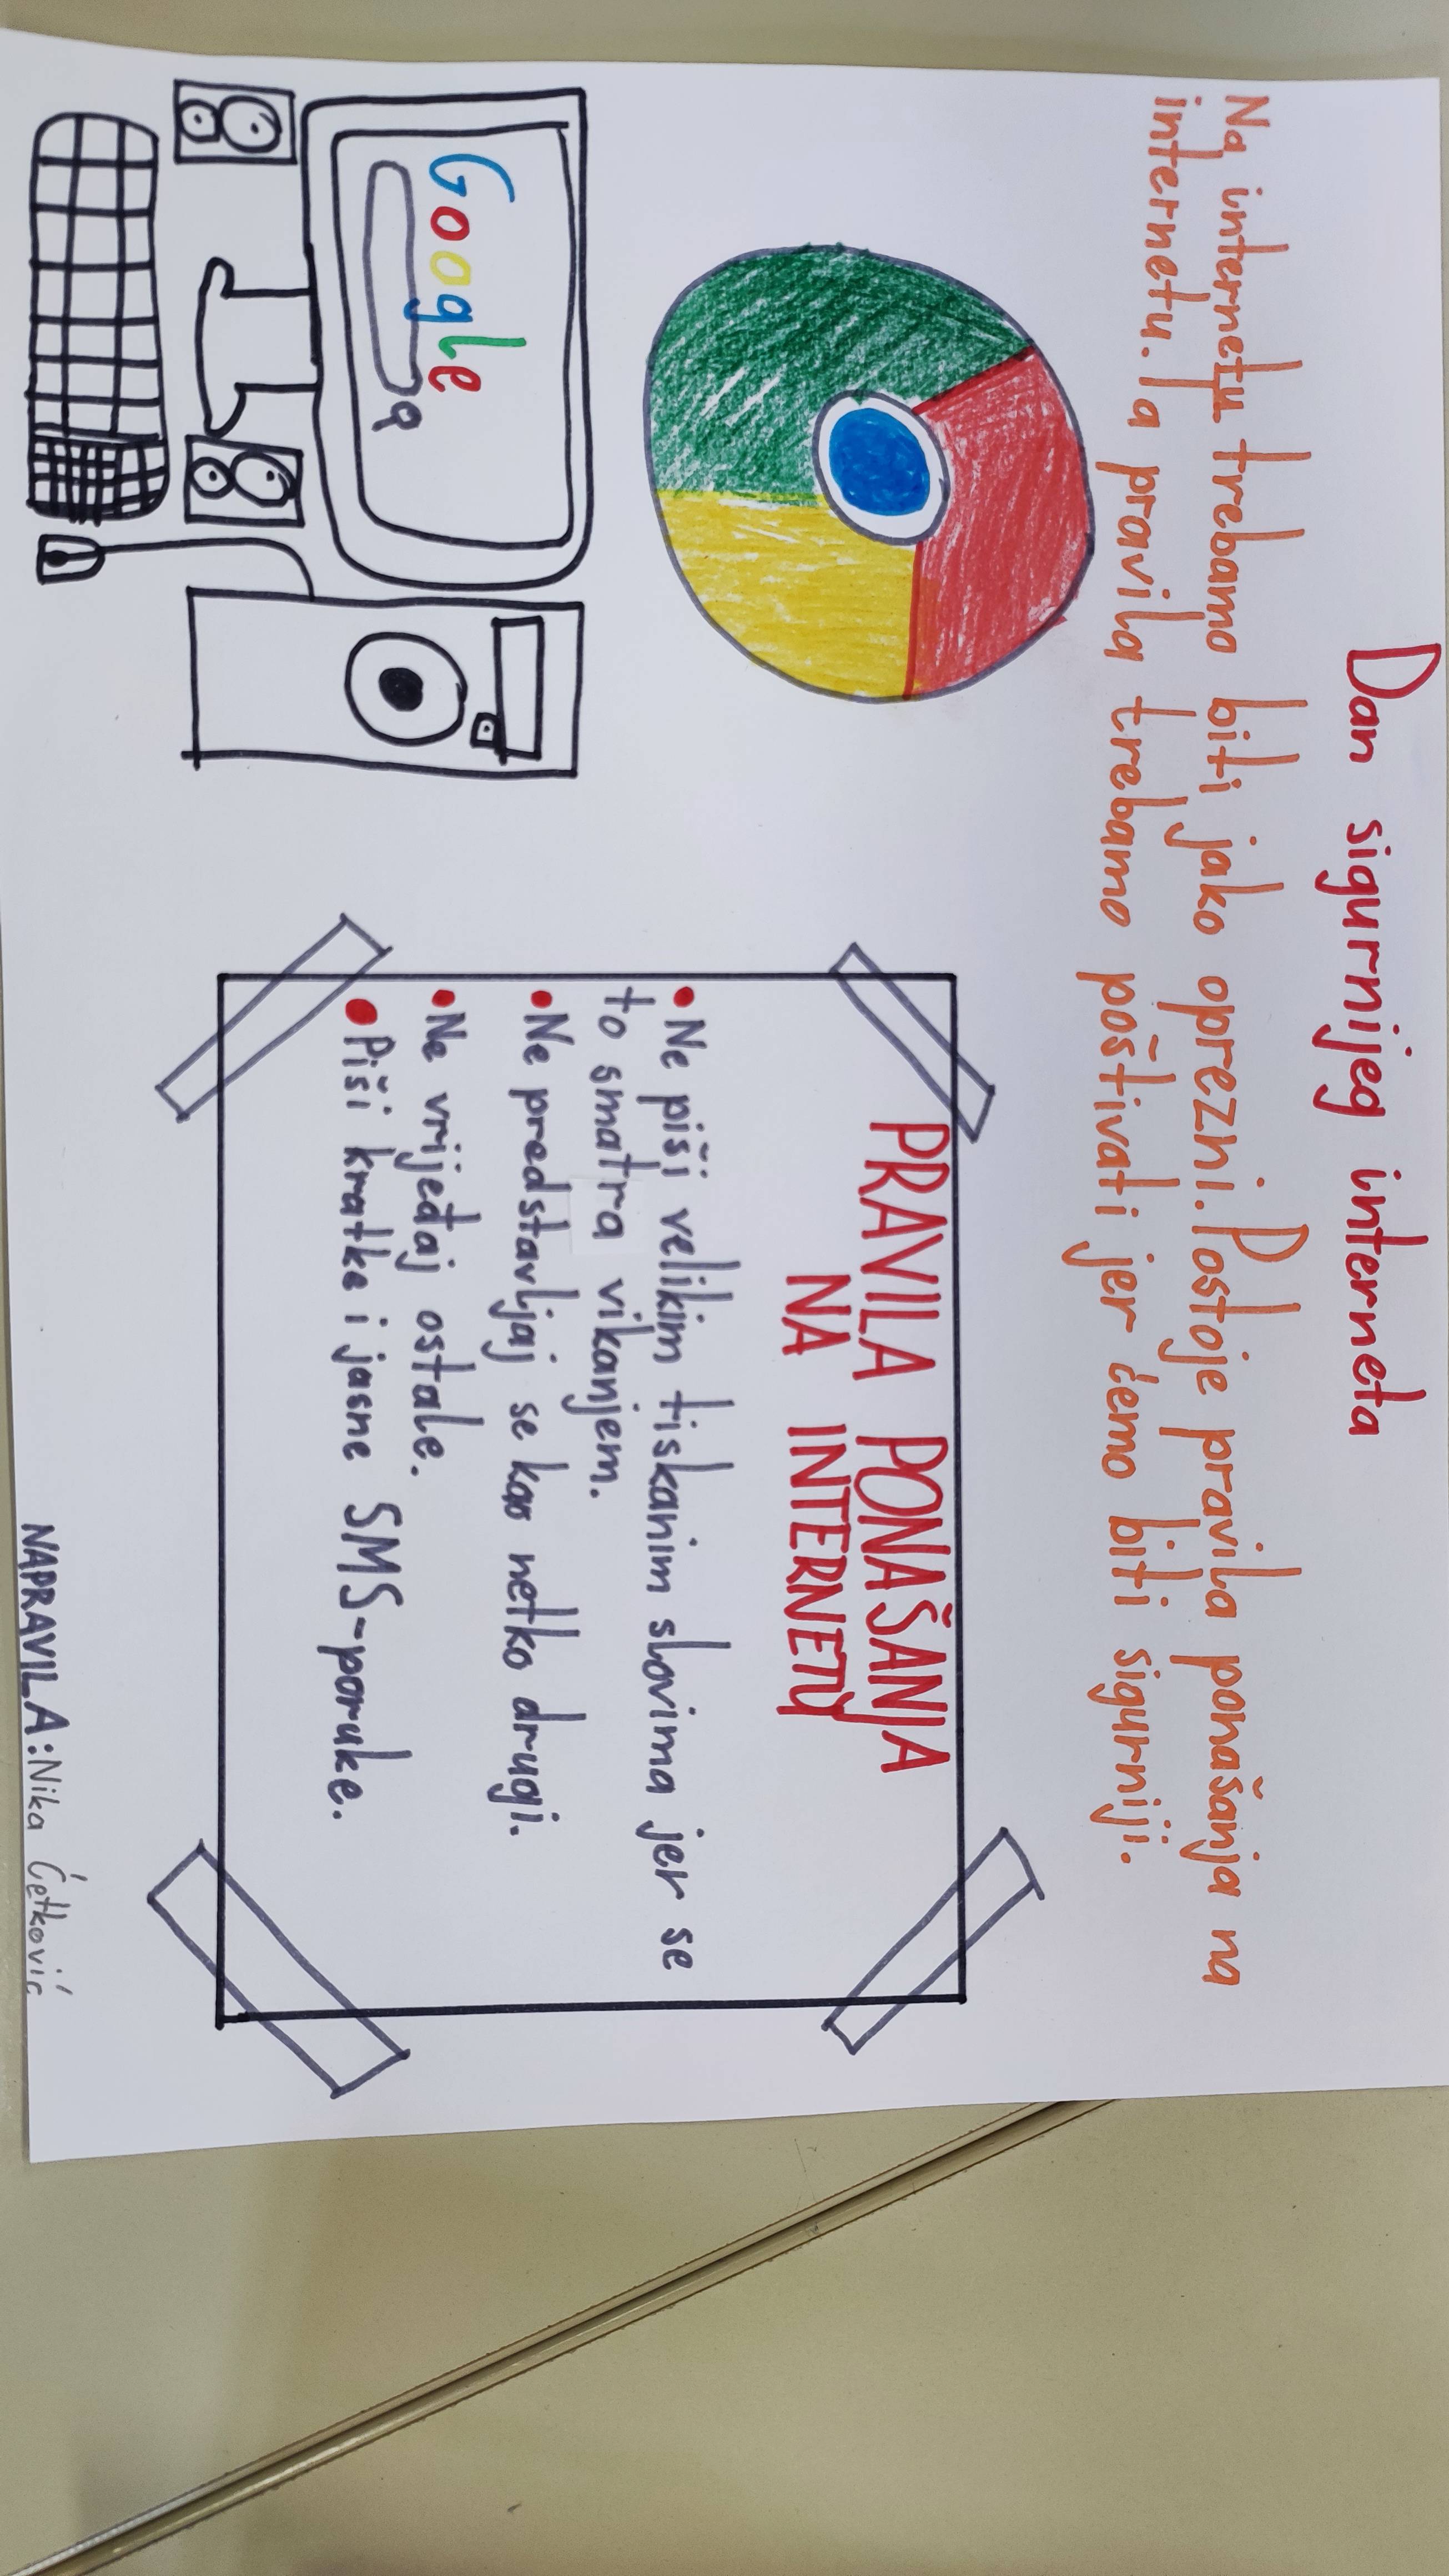 Dan sigurnijeg interneta
Na internetu trebamo biti jako oprezni. Postoje pravila ponašanja na
internetu. Ta pravila trebamo poštivati jer ćemo biti sigurniji.
Google
PRAVILA PONAŠANJA
NA INTERNETU
• Ne piši velikim tiskanim slovima jer se
to smatra vikanjem.
• Ne predstavljaj se kao netko drugi.
• Ne vrijeđaj ostale.
• Piši kratke i jasne SMS-poruke.
NAPRAVILA: Nika Ćetković